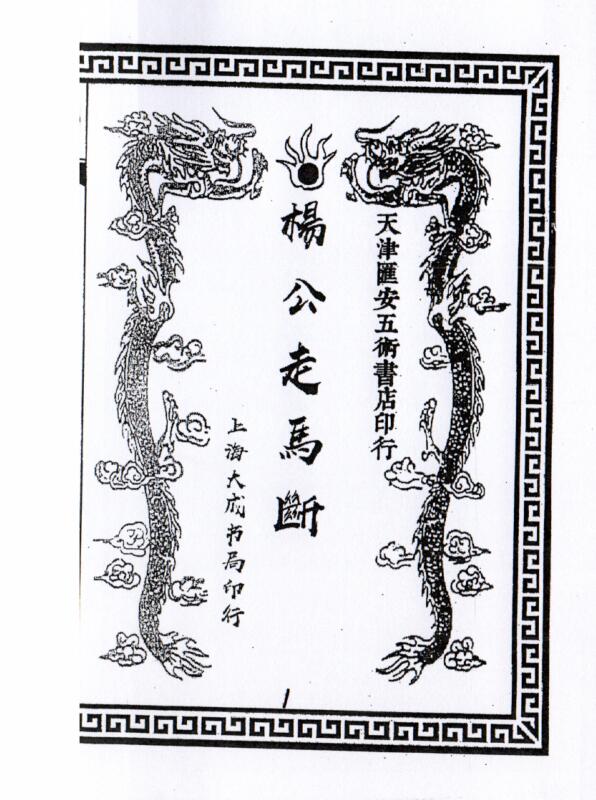 天津匯安五術書店印行
楊公走馬斷
上海大成书局印行
1